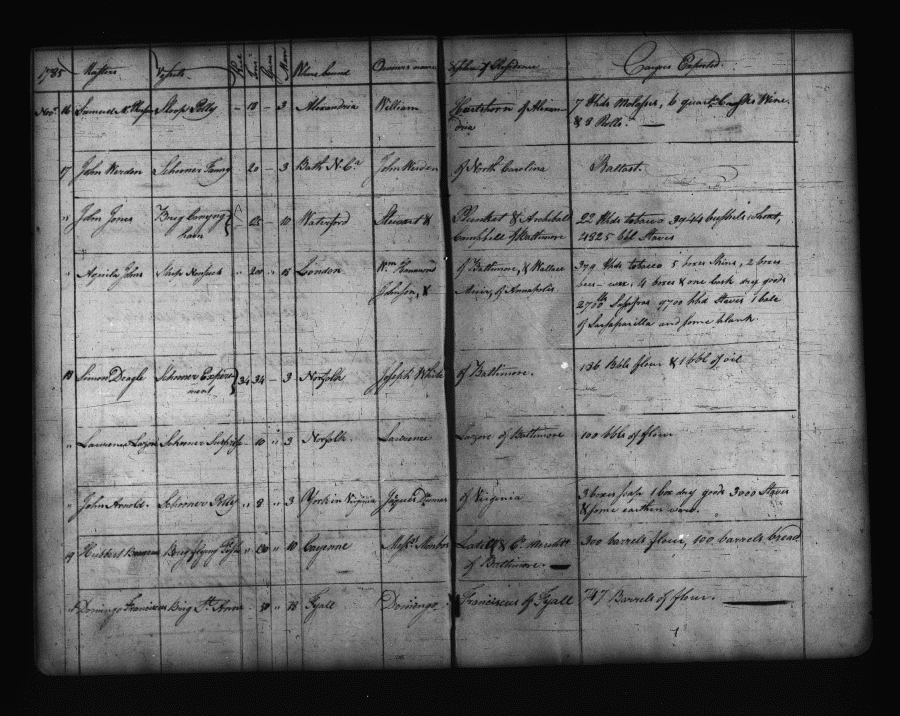 1785 Masters Vessels Where bound Owners name & place of Residence Cargoes Exported
Nov 16 Samuel Sloop Polly 18 3 Alexandria William Hartshorn of Alexan- 7 Hhds Molasses, 6 quarter Casks Wine
dria & 3 Bolls
17 John Werden Schooner Fanny 20 3 Bath N Ca John Werden of North Carolina Ballast.
" John Jones Brig 10 Waterford Stewart & Plunket & Archibald 22 Hhds tobacco 3944 bushels wheat,
ham Campbell of Baltimore 4825 bbl Staves
" Aquila Johns Ship Nonsuch 200 15 London Wm Hammond of Baltimore, & Wallace 379 Hhds tobacco 5 boxes Skins, 2 boxes
Johnson, & Muir, of Annapolis bees-wax, 4 boxes & one cask dry goods
Sassafras 9700 hhd Staves 1 bale
of Sarsaparilla and some plank
18 Simon Deagle Schooner Experi- 34 34 3 Norfolk Joseph White of Baltimore. 136 Bbls flour & 1 bbl of oil
ment
" Lawrence Schooner 10 " 3 Norfolk Lawrence of Baltimore 100 bbls of flour
" John Arnold. Schooner Polly " 8 " 3 York in Virginia Jaques of Virginia 3 boxes soap 1 box dry goods 3000 Staves
& some earthen ware.
19 Hubbert Brig flying Fish 10 Cayenne Messrs & Co. 300 barrels flour, 100 barrels bread
of Baltimore.
" Domingo Franciscus Brig St. Anne 15 Fyall Domingo Franciscus of Fyall 747 Barrels of flour.